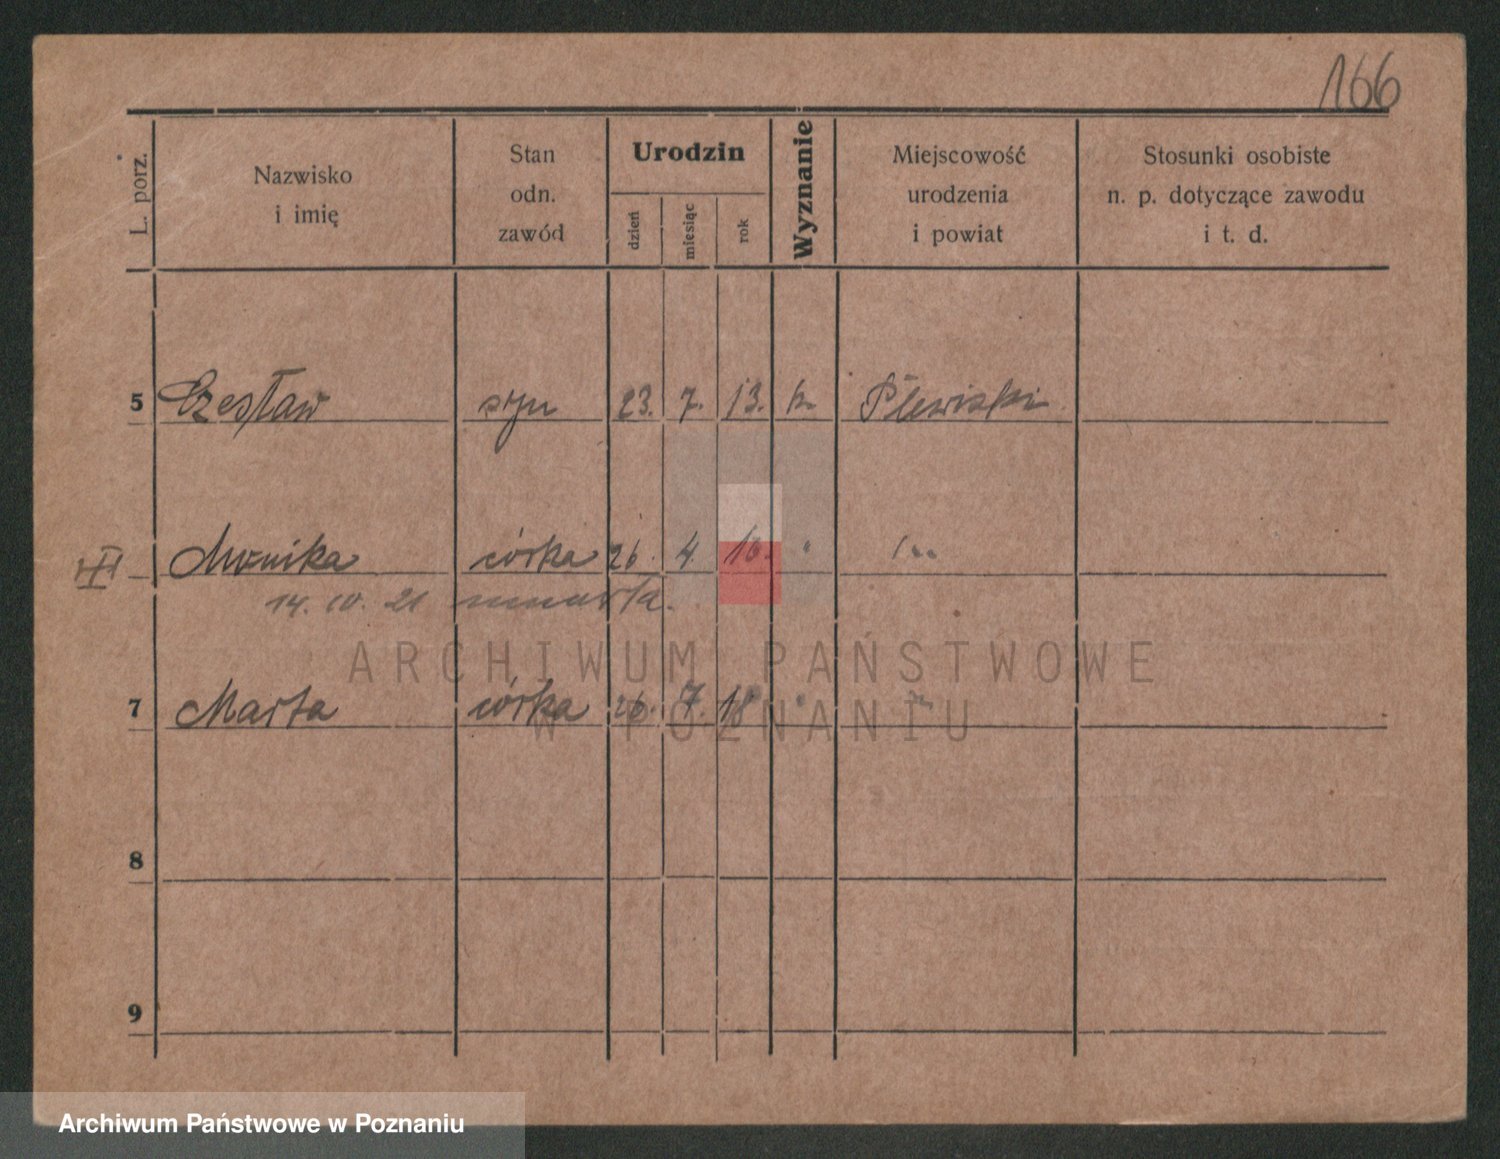 166
L. porz.
Nazwisko
i imię
Stan
odn.
zawód
Urodzin
dzień
miesiąc
rok
Wyznanie
Miejscowość
urodzenia
i powiat
Stosunki osobiste
n. p. dotyczące zawodu
i t. d.
5 Czesław syn 23. 7. 13. k. Plewiski
Monika córka 26. 4. 16. "
14. 10. 21 umarła.
7 Marta córka 26. 7. 18 "
8
9
ARCHIWUM PAŃSTWOWE
W POZNANIU
Archiwum Państwowe w Poznaniu